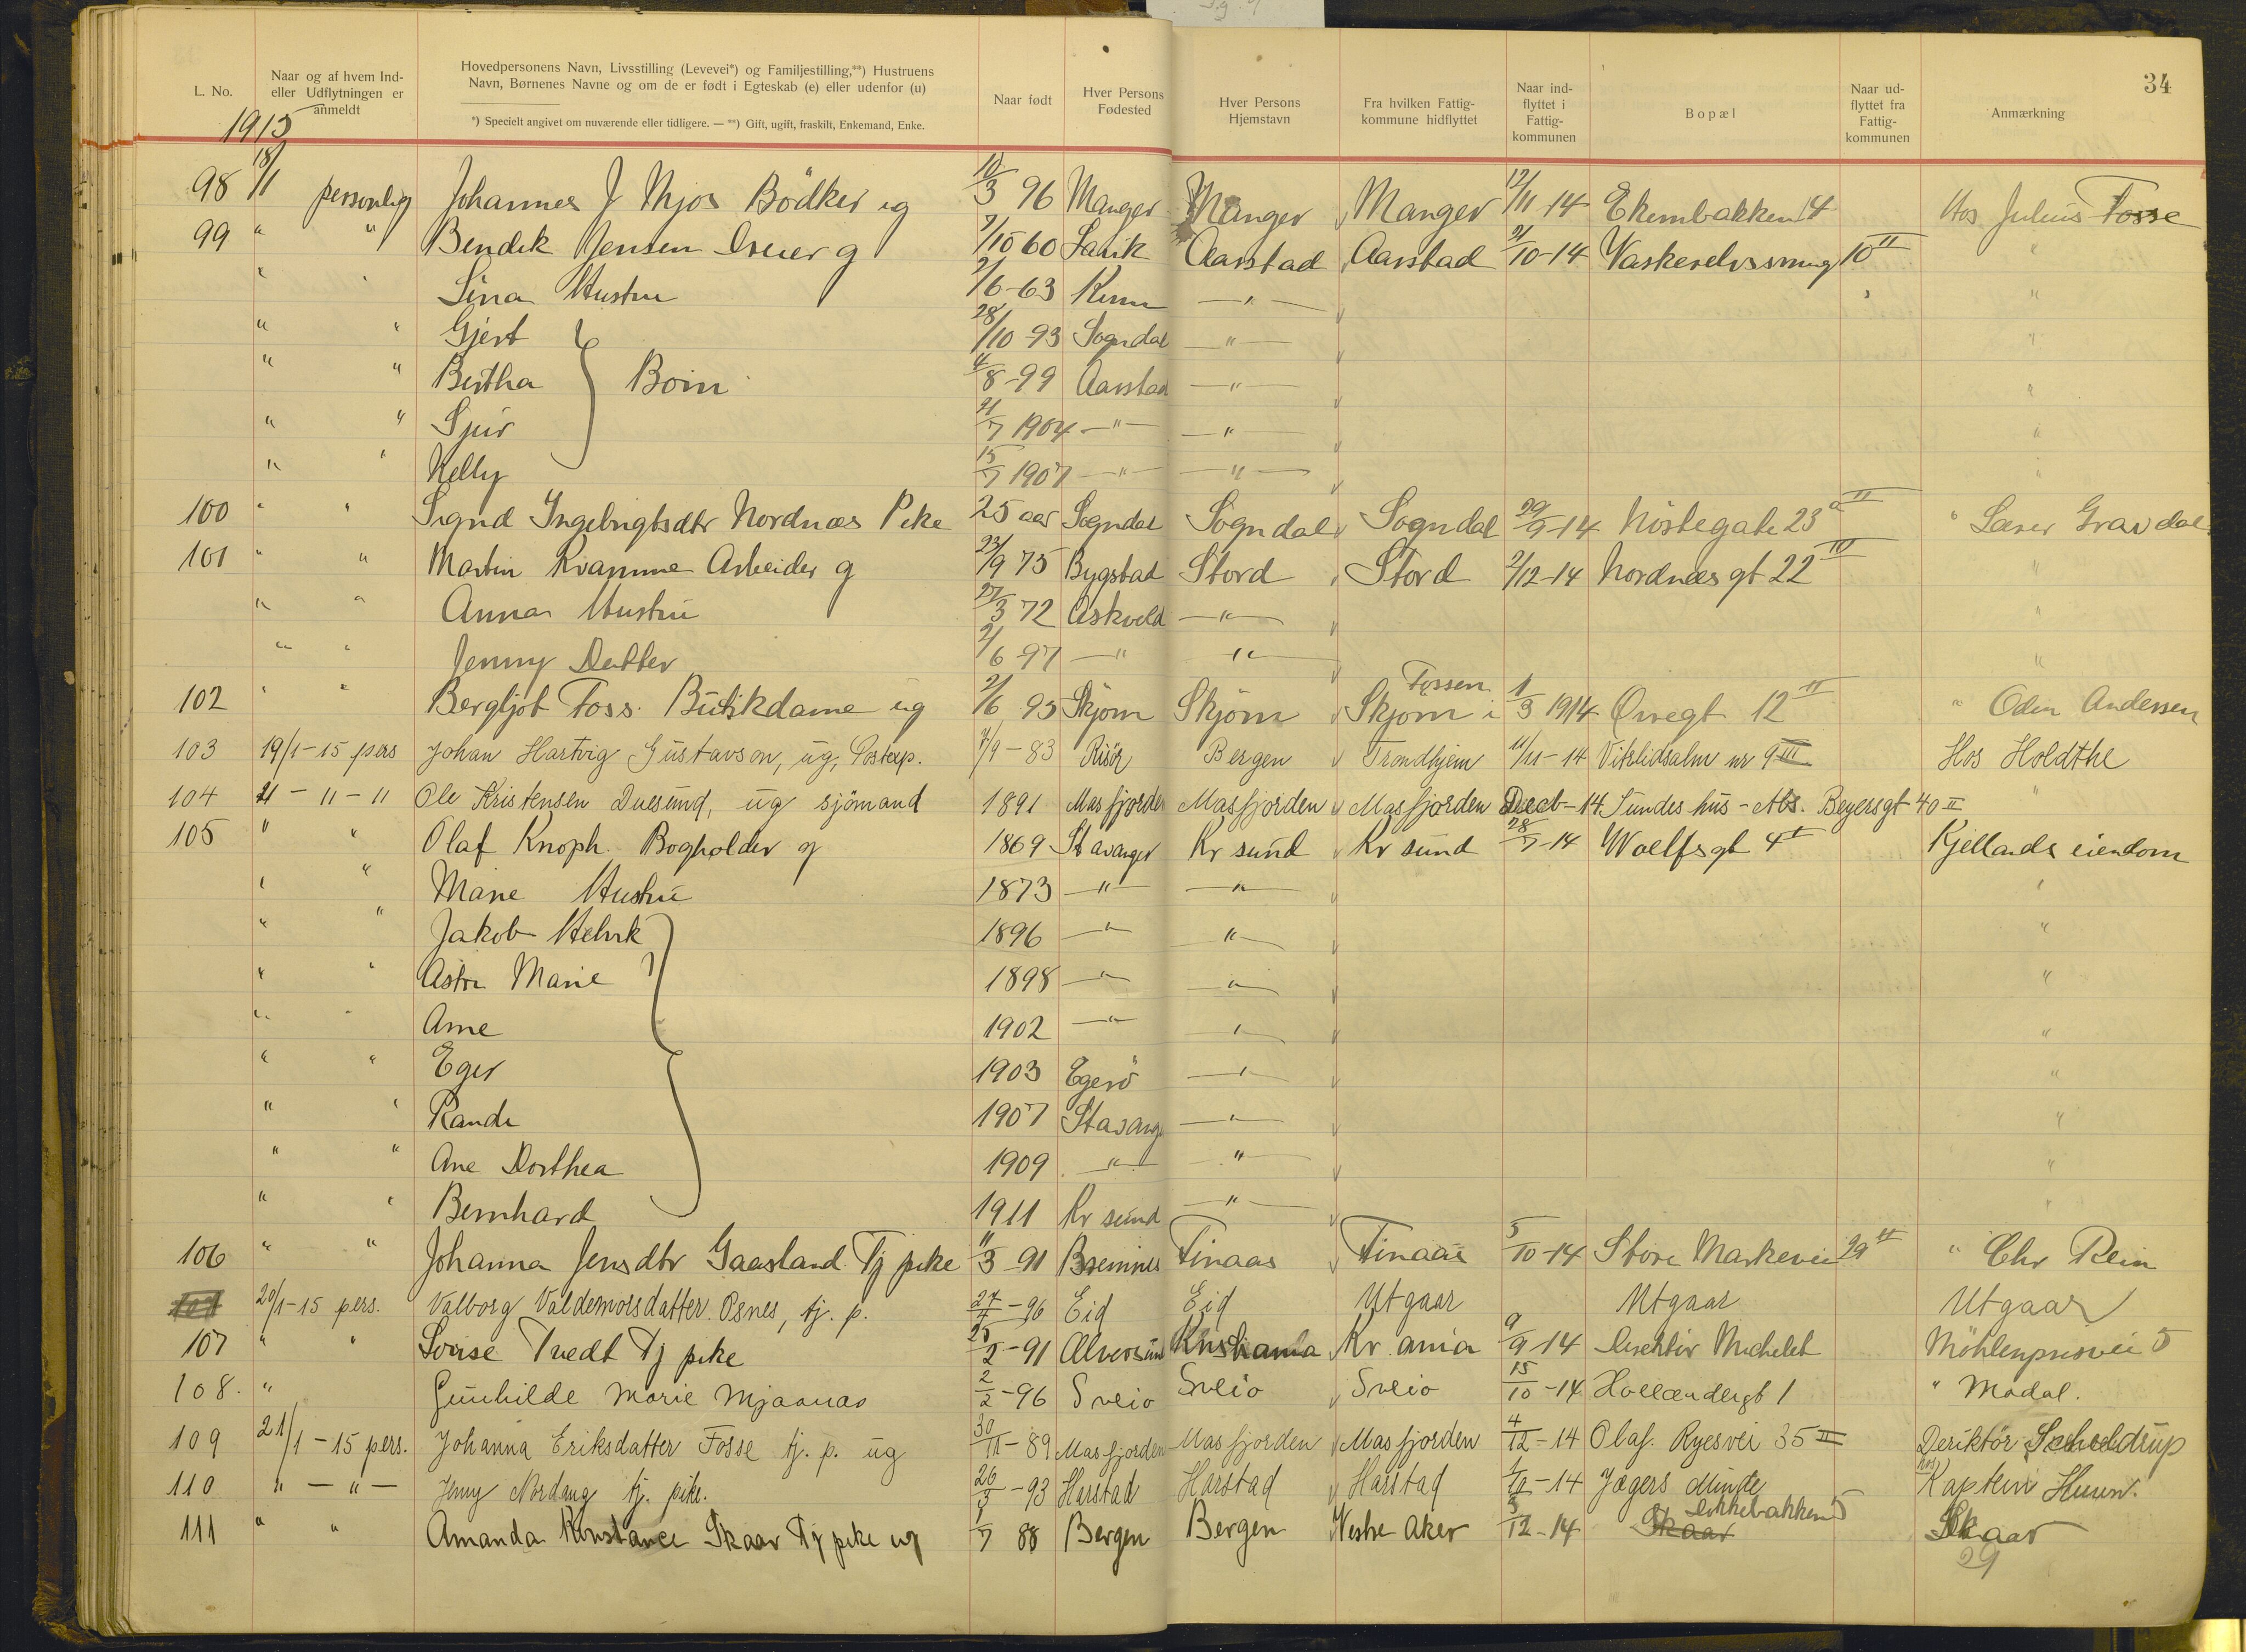 34
L. No.
Naar og af hvem Ind- eller Udflytningen er anmeldt
Hovedpersonens Navn, Livsstilling (Levevei*) og Familjestilling,**) Hustruens Navn, Børnenes Navne og om de er født i Egteskab (e) eller udenfor (u)
*) Specielt angivet om nuværende eller tidligere. — **) Gift, ugift, fraskilt, Enkemand, Enke.
Naar født
Hver Persons Fødested
Hver Persons Hjemstavn
Fra hvilken Fattig- kommune hidflyttet
Naar ind- flyttet i Fattig- kommunen
Bopæl
Naar ud- flyttet fra Fattig- kommunen
Anmærkning
1915
98 18/1 personlig Johannes J Mjøs Bödker ug 10/3 96 Manger Manger Manger 12/11 14 14 Hos Julius Fosse
99 " " Bendik Jensen g 7/10 60 Aarstad Aarstad 21/10-14 10 II "
" " Lina Hustru 2/6-63 Kinn — " — "
" " Gjert 28/10-93 Sogndal — " — "
" " Bertha } Börn 4/8-99 Aarstad — " — "
" " Sjur 21/7 1904 — " — — " — "
" " Nelly 15/7 1907 — " — — " — "
100 " " Signd Ingebrigtsdtr Nordnæs Pike 25 aar Sogndal Sogndal Sogndal 29/9-14 Nöstegate 23 a II " Gravdal
101 " " Martin Kvamme Arbeider g 23/9 75 Bygstad Stord Stord 2/12-14 Nordnæsgt 22 III "
" " Anna Hustru 27/3 72 Askvold — " — "
" " Jenny Datter 2/6 97 — " " "
102 " " Bergljot Foss. Butikdame ug 2/6 95 Skjöm Skjöm Skjom i Fossen 1/3 1914 12 II " Odin Andersen
103 19/1-15 pers Johan Hartvig Gustavson, ug, Postexp. 7/9-83 Risör Bergen Trondhjem 11/11-14 nr 9 III Hos Holdthe
104 " — " — " Ole Kristensen Duesund, ug sjömand 1891 Masfjorden Masfjorden Masfjorden Decb-14 Sundes hus - Abs. Beyersgt 40 II "
105 " " Olaf Knoph. Bogholder g 1869 Stavanger Kr sund Kr sund 28/7-14 Wolffsgt 4 I Kjellands eiendom
" " Marie Hustru 1873 — " — — " — "
" " Jakob 1896 — " — " "
" " Astri Marie 1898 — " — — " — "
" " Arne 1902 — " — — " — "
" " Eger 1903 Egerö — " — "
" " Randi 1907 Stavang — " — "
" " Ane Dorthea 1909 — " — — " — "
" " Bernhard 1911 Kr sund — " — "
106 " " Johanna Jensdtr Gaasland Tj pike 11/3-91 Bremnes Finaas Finaas 5/10-14 Store Markevei 29 II " Chr Rein
20/1-15 pers. Valborg Valdemorsdatter Osnes, tj. p. 27/7-96 Eid Eid Utgaar Utgaar Utgaar
107 " " Lovise Tvedt Tj pike 25/2-91 Alversund Kristiania Kr. ania 9/9-14 Direktör Michelet Möhlenprisvei 5
108. " Gunhilde Marie Mjaanas 2/2-96 Sveio Sveio Sveio 15/10-14 Hollændergt 1 " Madal.
109 21/1-15 pers. Johanna Eriksdatter Fosse tj. p. ug 30/11-89 Masfjorden Masfjorden Masfjorden 4/12-14 Olaf. Ryesvei 35 II Deriktör Scheldrup
110 " — " — Jenny Nordang tj. pike. 26/3-93 Harstad Harstad Harstad -14 Jægers Minde hos Kaptein
111 " " Amanda Konstance Skaar Tj pike ug 1/7 88 Bergen Bergen Vestre Aker 3/12-14 Skaar 5 Skaar
29